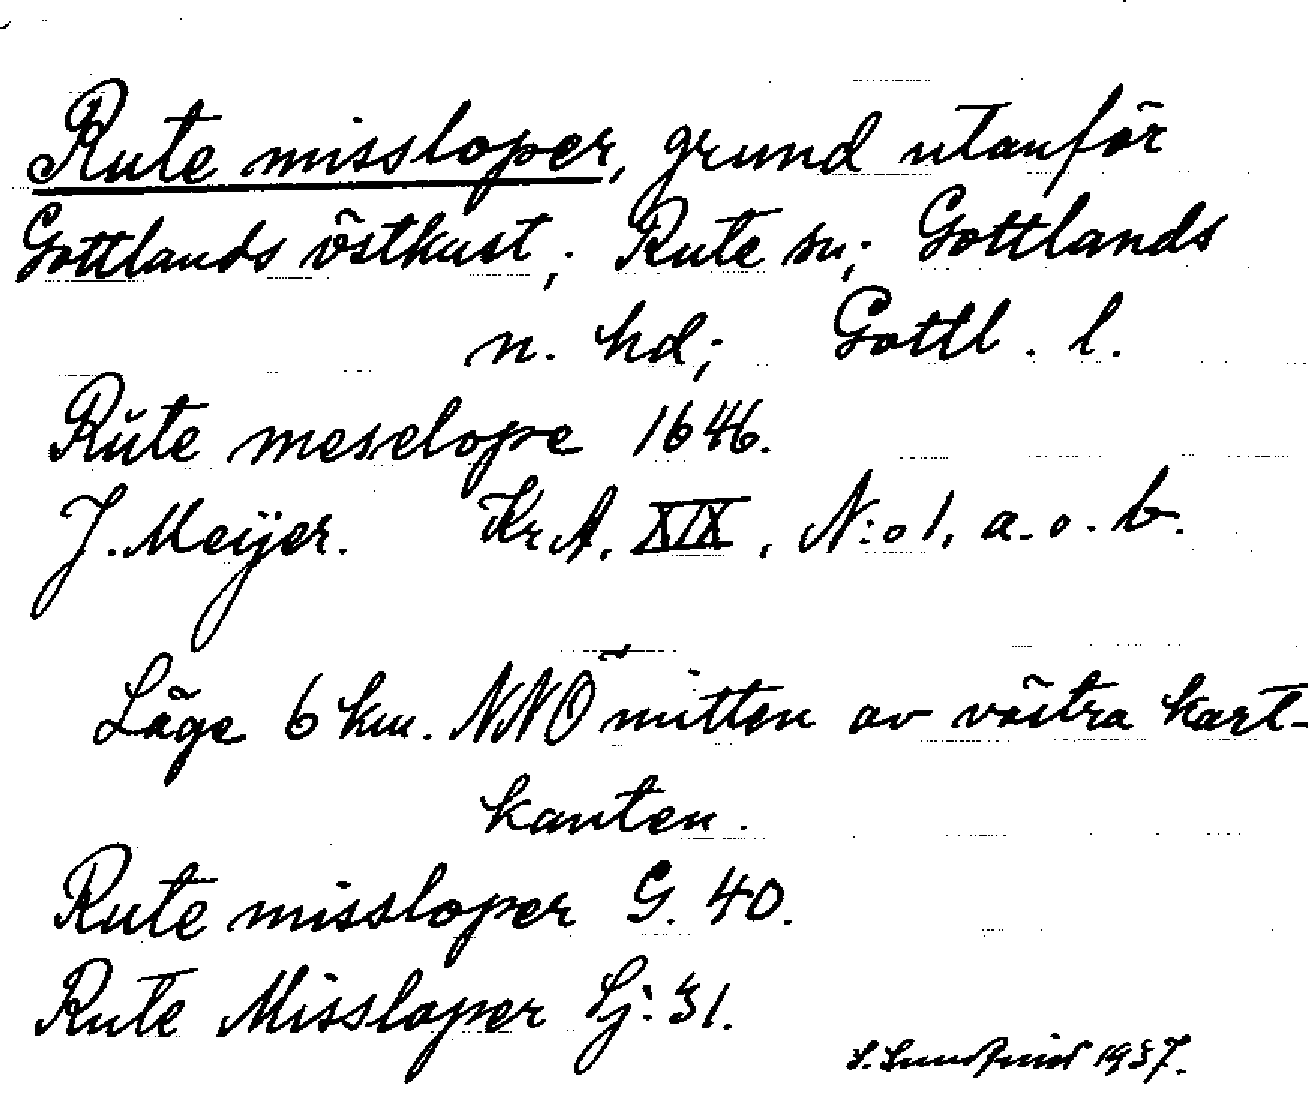 Rute missloper, grund utanför
Gottlands östkust,; Rute sn; Gottlands
n. hd; Gottl. l.
Rŭte meselope 1646.
J. Meijer. Kr A. XIX, N:o 1. a. o. b.
Läge 6 km. NNÖ mitten av västra kart-
kanten.
Rute missloper G. 40.
Rute Missloper Sj: 31.
1937.